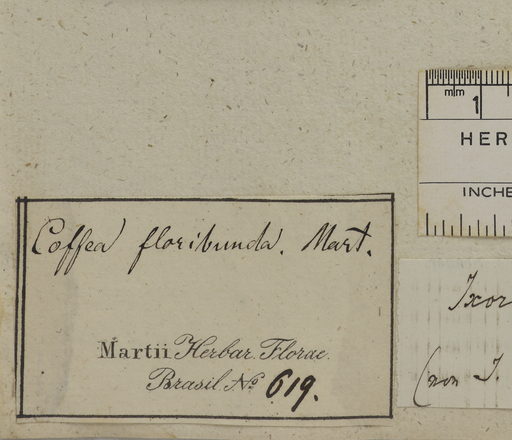 Coffea floribunda. Mart.
Martii Herbar. Florae
Brasil. No. 619.
mm 1
HER
INCHE
Ixor
(non I.